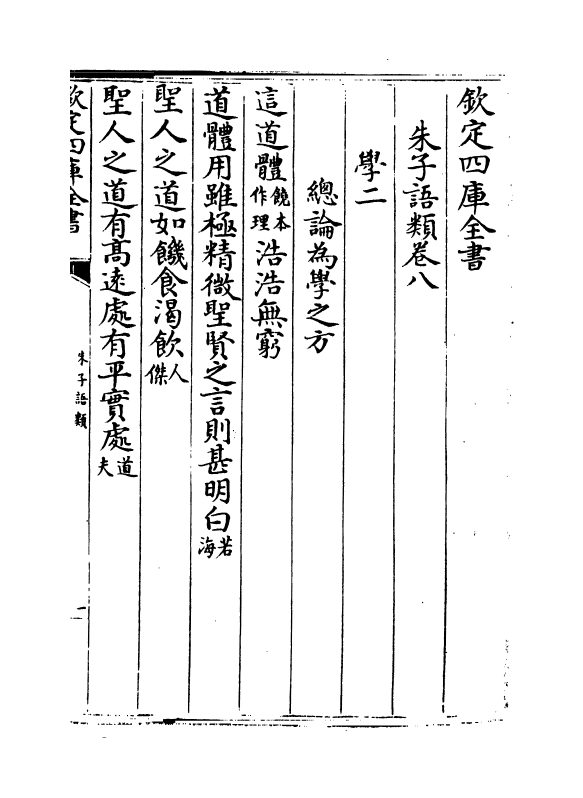 欽定四庫全書
朱子語類卷八
學二
總論為學之方
這道體饒本作理浩浩無窮
道體用雖極精微聖賢之言則甚明白若海
聖人之道如饑食渴飲人傑
聖人之道有高遠處有平實處道夫
欽定四庫全書
朱子語類
一